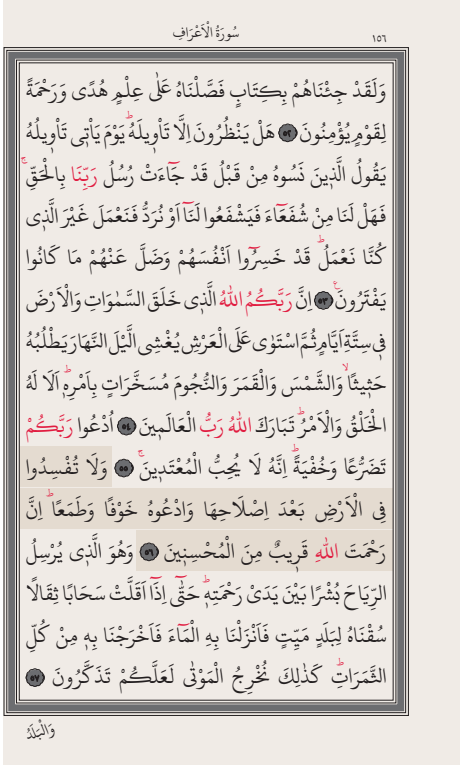 سُورَةُ الْاَعْرَافِ
١٥٦
وَلَقَدْ جِئْنَاهُمْ بِكِتَابٍ فَصَّلْنَاهُ عَلٰى عِلْمٍ هُدًى وَرَحْمَةً
لِقَوْمٍ يُؤْمِنُونَ ﴿٥٢﴾ هَلْ يَنْظُرُونَ اِلَّا تَأْوٖيلَهُۜ يَوْمَ يَأْتٖى تَأْوٖيلُهُ
يَقُولُ الَّذٖينَ نَسُوهُ مِنْ قَبْلُ قَدْ جَٓاءَتْ رُسُلُ رَبِّنَا بِالْحَقِّۚ
فَهَلْ لَنَا مِنْ شُفَعَٓاءَ فَيَشْفَعُوا لَنَٓا اَوْ نُرَدُّ فَنَعْمَلَ غَيْرَ الَّذٖى
كُنَّا نَعْمَلُۜ قَدْ خَسِرُٓوا اَنْفُسَهُمْ وَضَلَّ عَنْهُمْ مَا كَانُوا
يَفْتَرُونَۚ ﴿٥٣﴾ اِنَّ رَبَّكُمُ اللّٰهُ الَّذٖى خَلَقَ السَّمٰوَاتِ وَالْاَرْضَ
فٖى سِتَّةِ اَيَّامٍ ثُمَّ اسْتَوٰى عَلَى الْعَرْشِ يُغْشِى الَّيْلَ النَّهَارَ يَطْلُبُهُ
حَثٖيثًاۙ وَالشَّمْسَ وَالْقَمَرَ وَالنُّجُومَ مُسَخَّرَاتٍ بِاَمْرِهٖۜ اَلَا لَهُ
الْخَلْقُ وَالْاَمْرُۜ تَبَارَكَ اللّٰهُ رَبُّ الْعَالَمٖينَ ﴿٥٤﴾ اُدْعُوا رَبَّكُمْ
تَضَرُّعًا وَخُفْيَةًۜ اِنَّهُ لَا يُحِبُّ الْمُعْتَدٖينَۚ ﴿٥٥﴾ وَلَا تُفْسِدُوا
فِى الْاَرْضِ بَعْدَ اِصْلَاحِهَا وَادْعُوهُ خَوْفًا وَطَمَعًاۜ اِنَّ
رَحْمَتَ اللّٰهِ قَرٖيبٌ مِنَ الْمُحْسِنٖينَ ﴿٥٦﴾ وَهُوَ الَّذٖى يُرْسِلُ
الرِّيَاحَ بُشْرًا بَيْنَ يَدَىْ رَحْمَتِهٖۜ حَتّٰٓى اِذَٓا اَقَلَّتْ سَحَابًا ثِقَالًا
سُقْنَاهُ لِبَلَدٍ مَيِّتٍ فَاَنْزَلْنَا بِهِ الْمَٓاءَ فَاَخْرَجْنَا بِهٖ مِنْ كُلِّ
الثَّمَرَاتِۜ كَذٰلِكَ نُخْرِجُ الْمَوْتٰى لَعَلَّكُمْ تَذَكَّرُونَ ﴿٥٧﴾
وَالْبَلَدُ